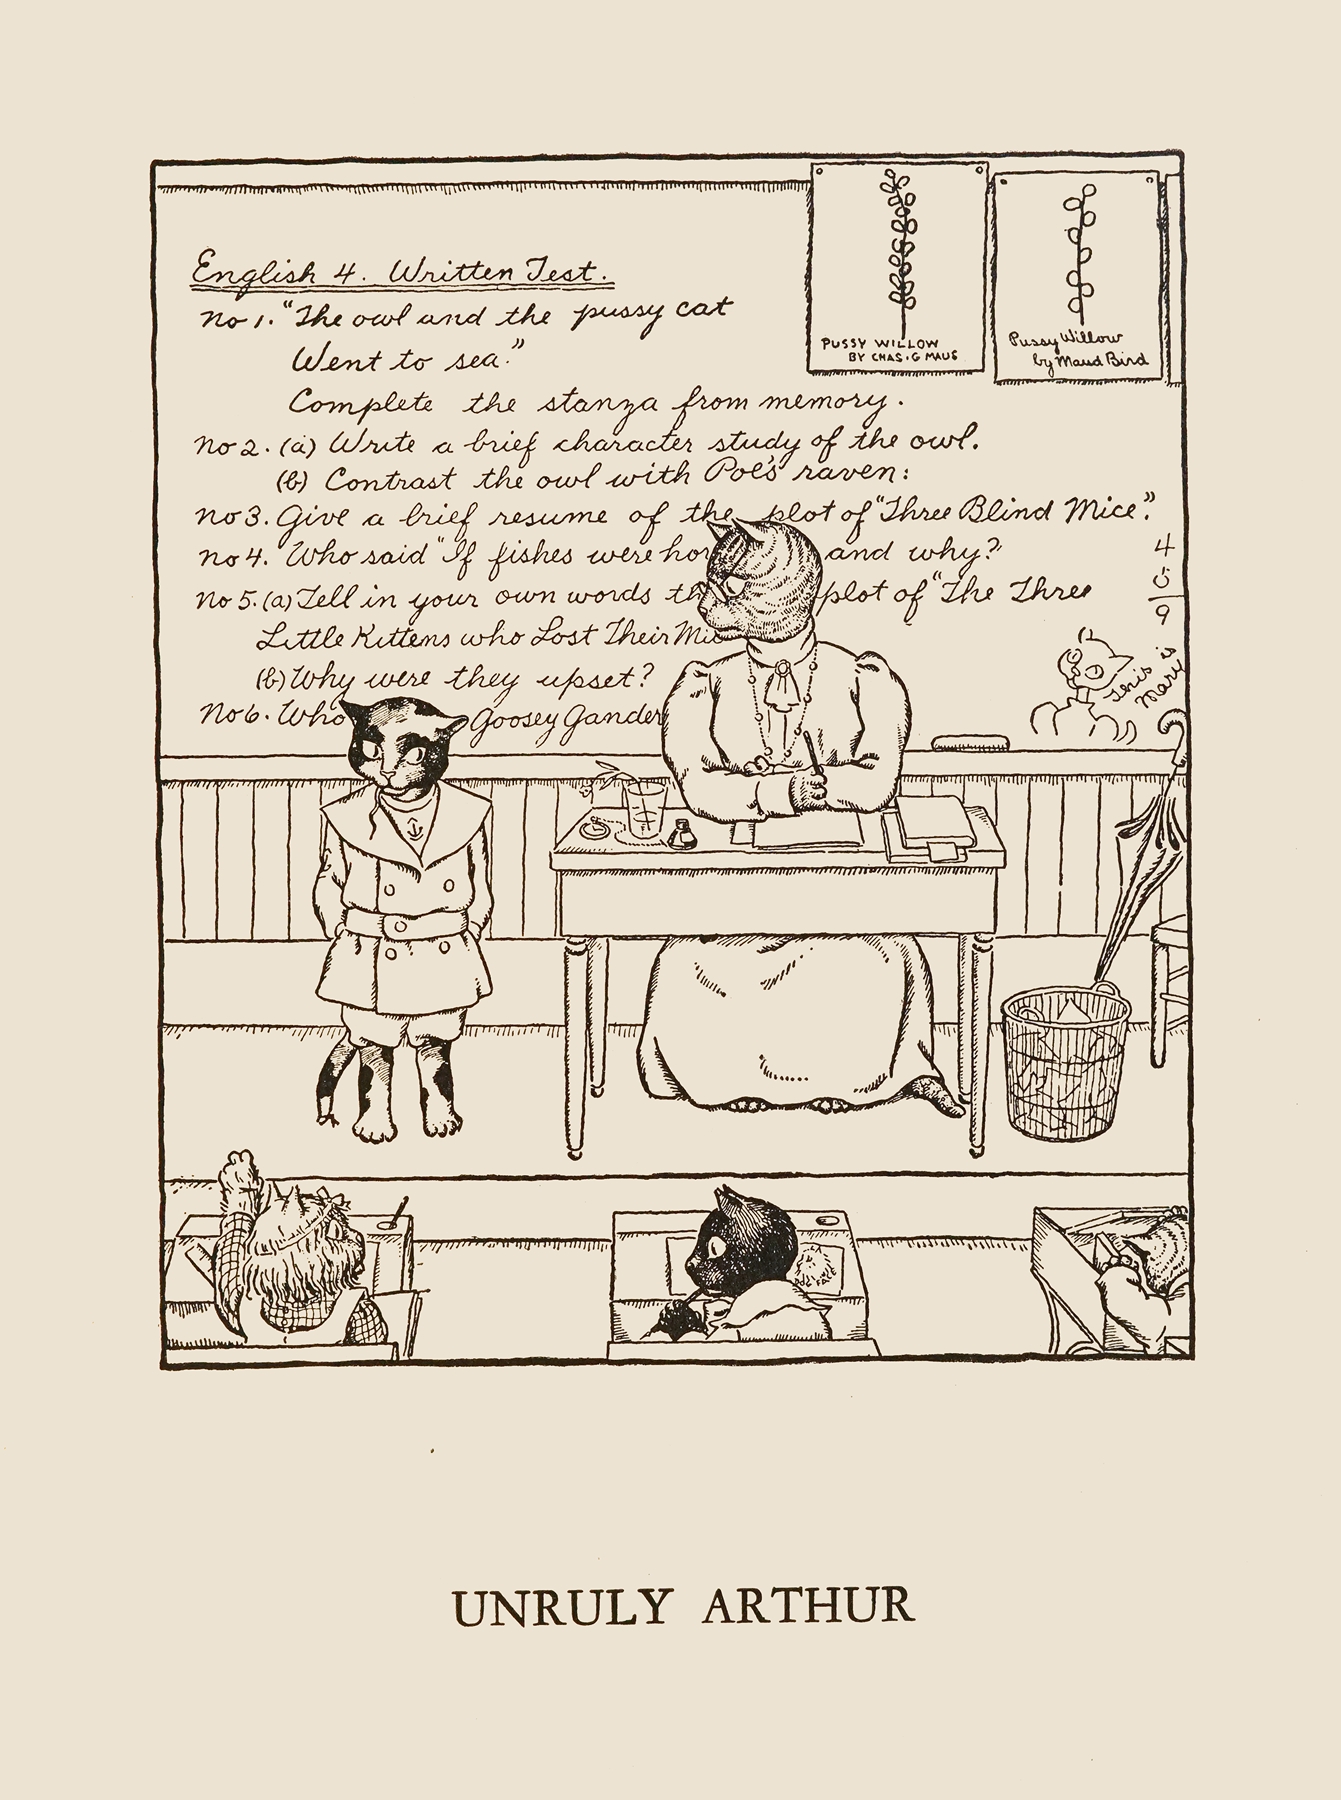 English 4. Written Test.
No 1. "The owl and the pussy cat
Went to sea."
Complete the stanza from memory.
No 2. (a) Write a brief character study of the owl.
(b) Contrast the owl with Poe's raven:
No 3. Give a brief resume of the plot of "Three Blind Mice."
No 4. Who said "If fishes were hor and why?
No 5. (a) Tell in your own words th plot of "The Three
Little Kittens who Lost Their Mi
(b) Why were they upset?
No 6. Who Goosey Gander
PUSSY WILLOW
BY CHAS. G MAUS
Pussy Willow
by Maud Bird
4
5
9
This is
Mary
UNRULY ARTHUR